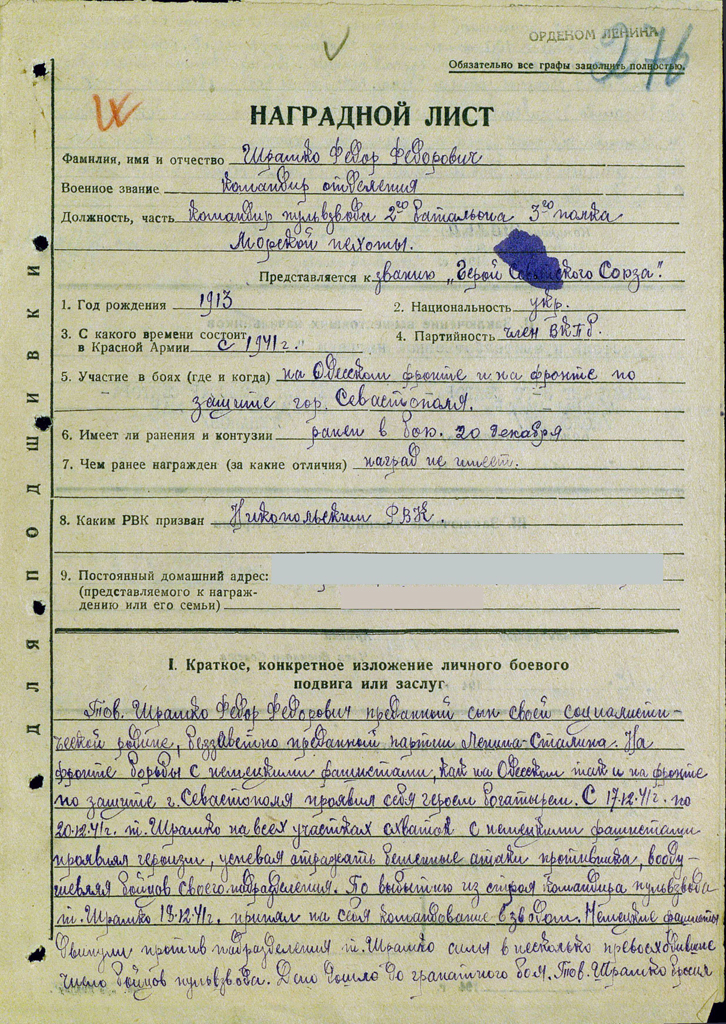 ОРДЕНОМ ЛЕНИНА
276
Обязательно все графы заполнить полностью.
НАГРАДНОЙ ЛИСТ
Фамилия, имя и отчество Шрамко Федор Федорович
Военное звание командир отделения
Должность, часть командир пульвзвода 2го батальона 3го полка
Морской пехоты.
Представляется к званию "Герой Советского Союза".
1. Год рождения 1913
2. Национальность укр.
3. С какого времени состоит
в Красной Армии с 1941 г.
4. Партийность член ВКПб.
5. Участие в боях (где и когда) на Одесском фронте и на фронте по
защите гор. Севастополя.
6. Имеет ли ранения и контузии ранен в бок. 20 декабря
7. Чем ранее награжден (за какие отличия) наград не имеет.
8. Каким РВК призван Никопольским РВК.
9. Постоянный домашний адрес:
(представляемого к награж-
дению или его семьи)
ДЛЯ ПОДШИВКИ
I. Краткое, конкретное изложение личного боевого
подвига или заслуг
Тов. Шрамко Федор Федорович преданный сын своей социалисти-
ческой родине, беззаветно преданной партии Ленина-Сталина. На
фронте борьбы с немецкими фашистами, как на Одесском так и на фронте
по защите г. Севастополя проявил себя героем богатырем. С 17.12.41г. по
20.12.41г. т. Шрамко на всех участках схваток с немецкими фашистами
проявлял героизм, успевая отражать бешенные атаки противника, вооду-
шевляя бойцов своего подразделения. По выбытию из строя командира пульвзвода
т. Шрамко 19.12.41г. принял на себя командование взводом. Немецкие фашисты
двинули против подразделения т. Шрамко силы в несколько превосходившие
число бойцов пульвзвода. Дело дошло до гранатного боя. Тов. Шрамко бросил